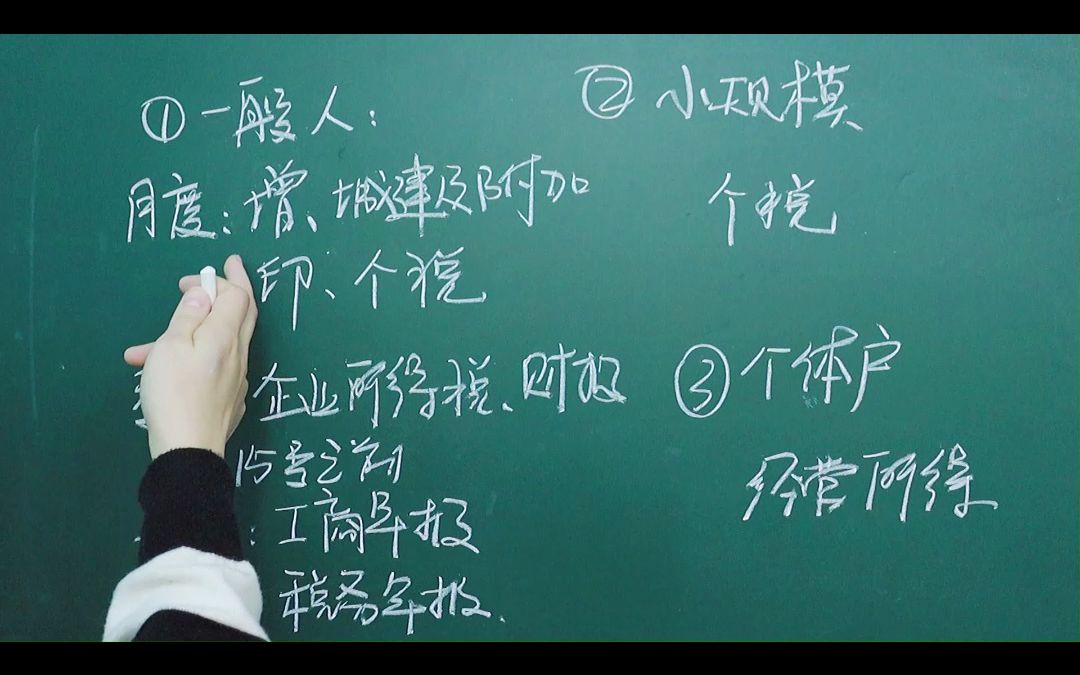 ①一般人：
月度：增、城建及附加
印、个税
企业所得税、财报
15号之前
：工商年报
税务年报.
②小规模
个税
③个体户
经营所得